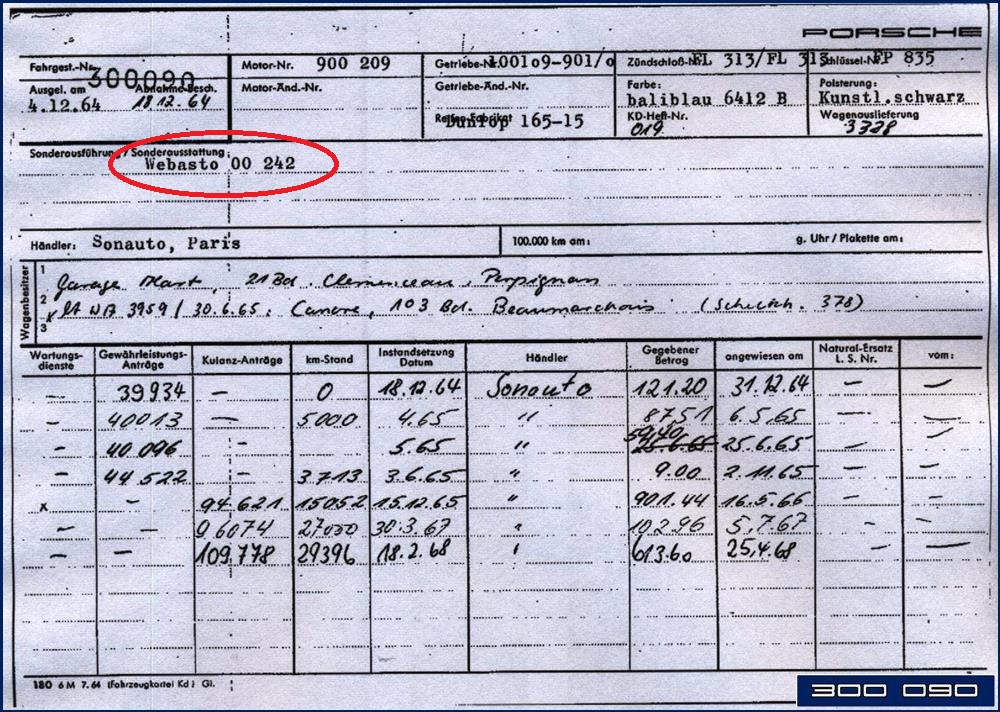 PORSCHE
Fahrgest.-Nr. 300090 Motor-Nr. 900 209 Getriebe-Nr. 100109-901/0 Zündschloß-Nr. FL 313/FL 313 Schlüssel-Nr. FP 835
Ausgel. am 4.12.64 Abnahme-Besch. 18.12.64 Motor-Änd.-Nr. Getriebe-Änd.-Nr. Farbe: baliblau 6412 B Polsterung: Kunstl.schwarz
Reifen-Fabrikat Dunlop 165-15 KD-Heft-Nr. 019 Wagenauslieferung 3328
Sonderausführung / Sonderausstattung: Webasto 00 242
Händler: Sonauto, Paris 100.000 km am: g. Uhr / Plakette am:
Wagenbesitzer
1 Garage Mart, 21 Bd. Clemenceau, Perpignan
2 lt WA 3959 / 30.6.65: Canore, 103 Bd. Beaumarchais (Scheckh. 378)
3
Wartungsdienste Gewährleistungs-Anträge Kulanz-Anträge km-Stand Instandsetzung Datum Händler Gegebener Betrag angewiesen am Natural-Ersatz L. S. Nr. vom:
— 39934 — 0 18.12.64 Sonauto 121.20 31.12.64 — —
— 40013 — 5000 4.65 " 87.51 6.5.65 — —
— 40 096 - 5.65 " 59.40 25.6.65 25.6.65 — —
— 44 522 - 3713 3.6.65 " 9.00 2.11.65 — —
x - 94621 15052 15.12.65 " 901.44 16.5.66 — —
— — 96074 27000 30.3.67 " 102.96 5.7.67 - —
— — 109.778 29396 18.2.68 " 613.60 25.4.68 — —
180 6 M 7. 64 (Fahrzeugkartei Kd) Gl.
300 090